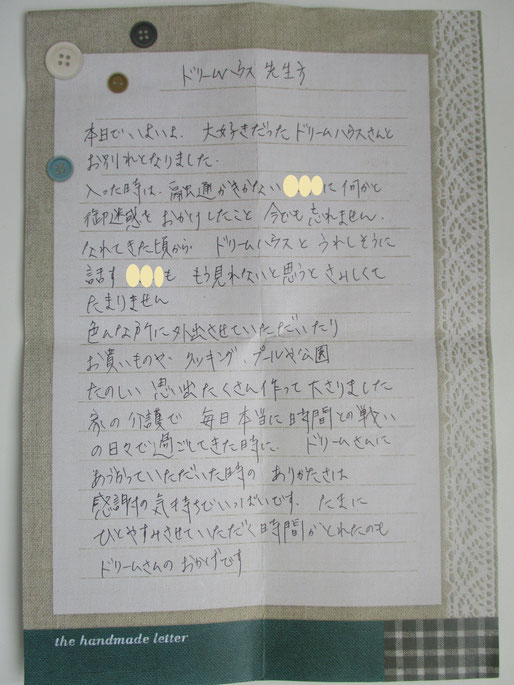 ドリームハウス 先生方
本日でいよいよ、大好きだったドリームハウスさんと
お別れとなりました。
入った時は、融通がきかない に何かと
御迷惑をおかけしたこと 今でも忘れません。
なれてきた頃から ドリームハウスと うれしそうに
話す も もう見れないと思うと さみしくて
たまりません
色んな所に外出させていただいたり
お買いものや、クッキング、プールや公園
たのしい 思い出たくさん作って下さりました
家の介護で 毎日本当に時間との戦い
の日々で過ごしてきた時に、 ドリームさんに
あづかっていただいた時の ありがたさは
感謝の気持ちでいっぱいです。 たまに
ひとやすみさせていただく時間がとれたのも
ドリームさんの おかげです
the handmade letter